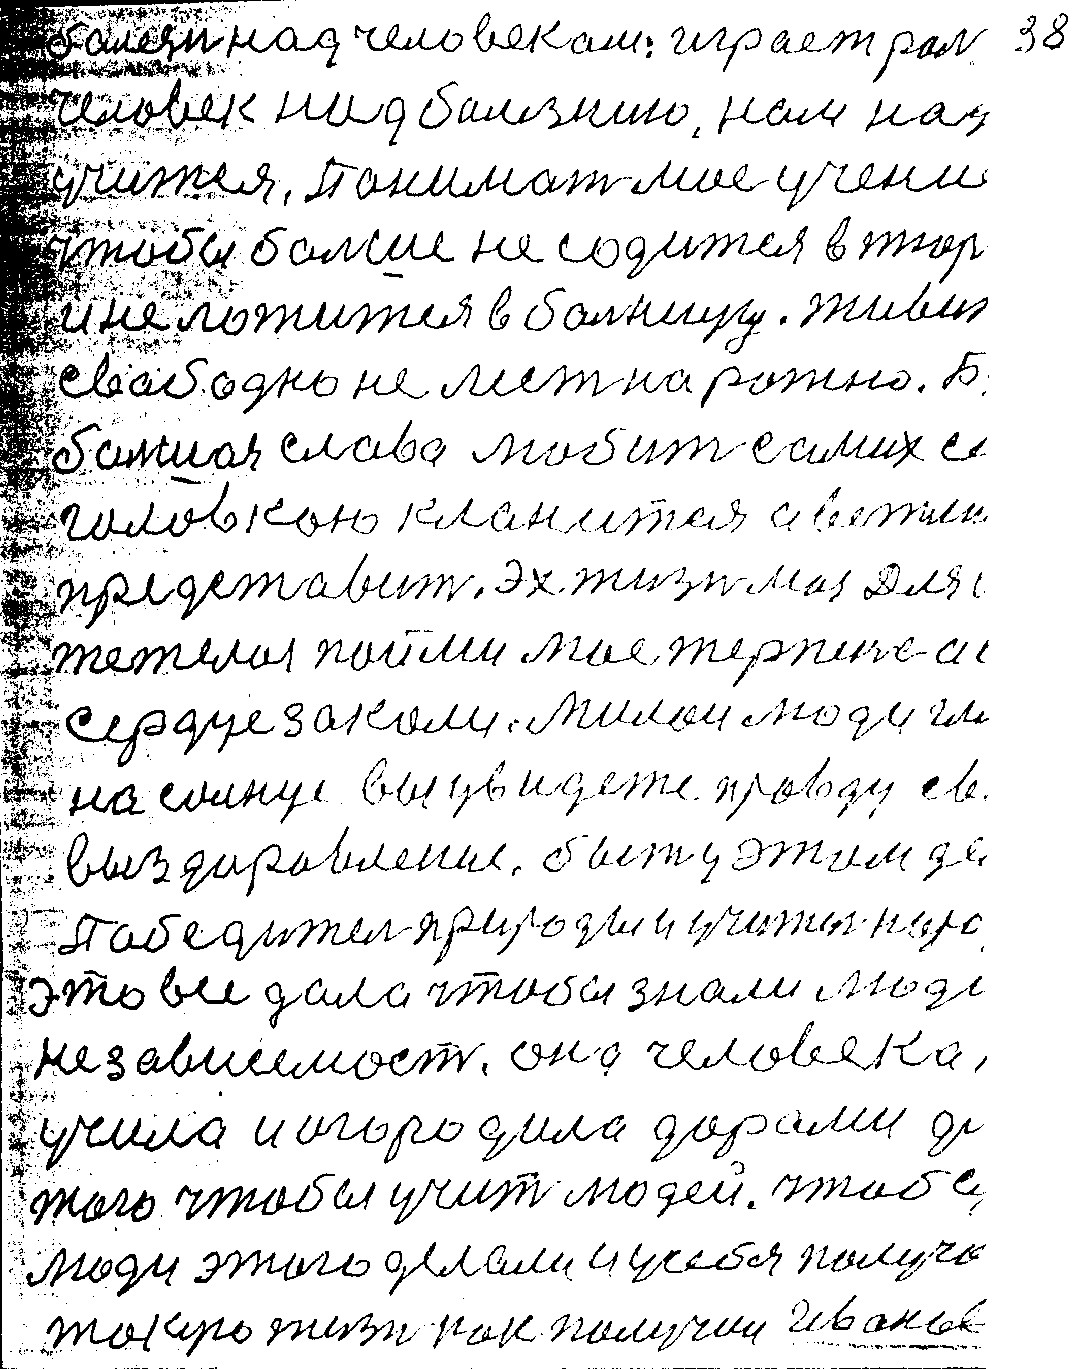 болезн над человеком: играет рол 38
человек над болезнию, нам над
учится, Понимат мое учение
чтобы болше не содится в тюр
и не ложится в болницу. живит
свабодно не лест на рожно. Б
болшая слава любит самих се
головкою кланится а вежли
представит. Эх. жизн моя Для
тежелая пойми мое терпение а
сердце заколи. Милои люди гля
на солнце вы увидете правду св
выздоровление. быт у этом де
Победител природы и учител наро
это все дала чтобы знали люди
независемост. она человека,
учила и огородила дарами дл
того чтобы учит людей. чтобы
люди этого делали и у себя получа
такую жизн как получил Иванов